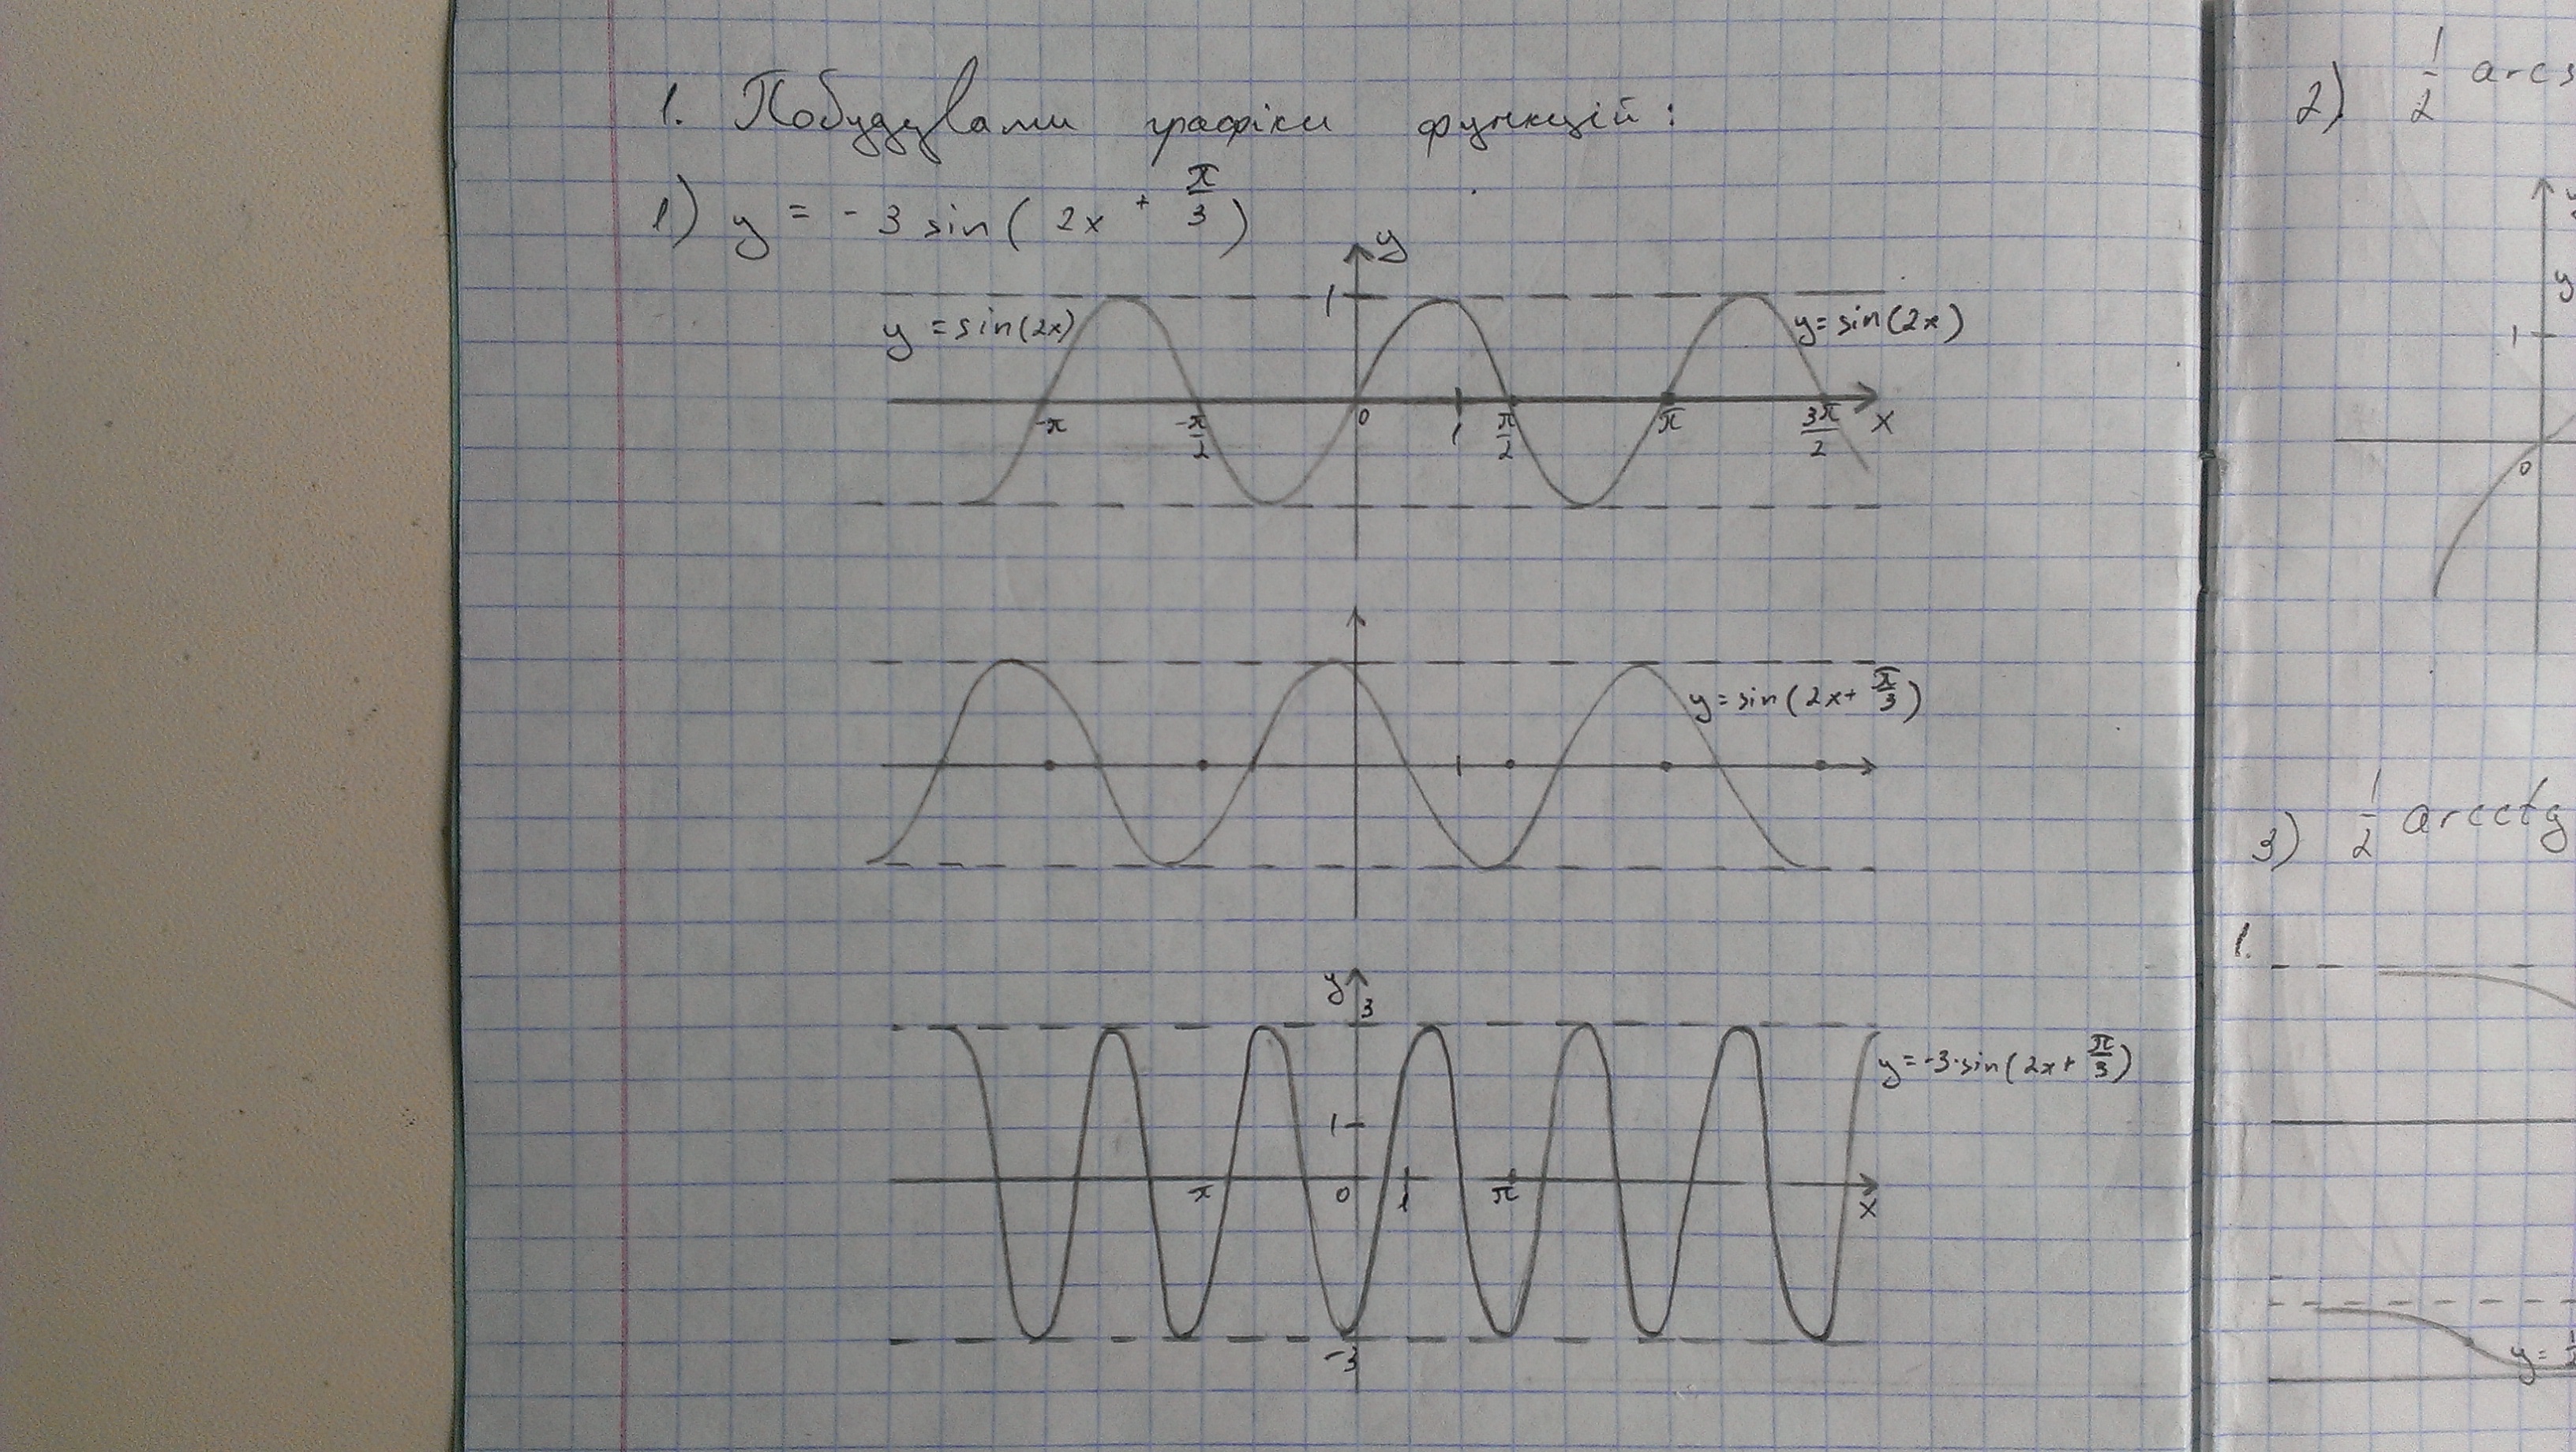 1. Побудувати графіки функцій:
1) y = - 3 sin ( 2x + π/3 )
y
1
y = sin(2x)
y = sin(2x)
-π
-π/2
0
1
π/2
π
3π/2
x
y = sin ( 2x + π/3 )
1
y
3
y = -3·sin ( 2x + π/3 )
1
π
0
1
π
x
-3
2) 1/2 arcs
y
1
0
3) 1/2 arcctg
1.
y =